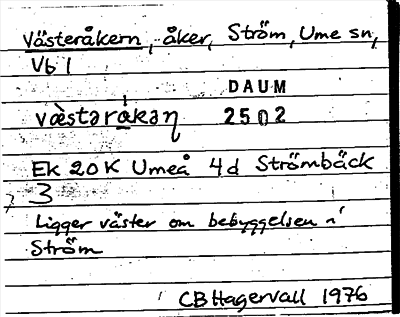 Västeråkern, åker, Ström, Ume sn,
Vb l
DAUM
2502
væ̀staråkaɳ
Ek 20K Umeå 4d Strömbäck
3
Ligger väster om bebyggelsen i
Ström
CBHagervall 1976